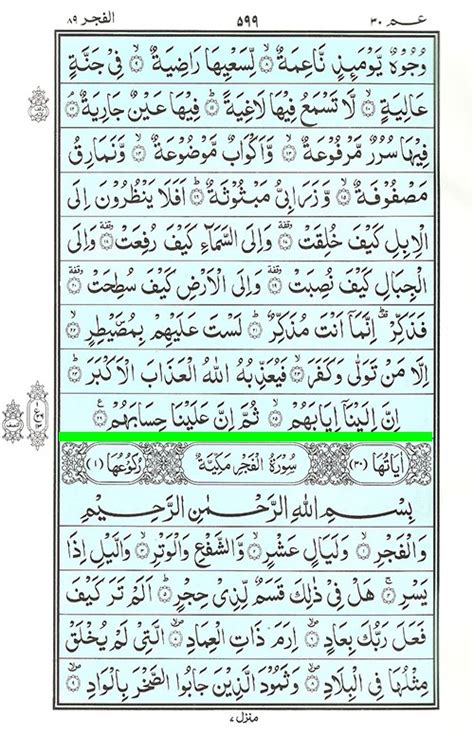 عـم ٣٠ ٥٩٩ الفجر ٨٩
وُجُوْهٌ يَّوْمَئِذٍ نَّاعِمَةٌ ۙ﴿٨﴾ لِّسَعْيِهَا رَاضِيَةٌ ۙ﴿٩﴾ فِيْ جَنَّةٍ
عَالِيَةٍ ۙ﴿١٠﴾ لَّا تَسْمَعُ فِيْهَا لَاغِيَةً ؕ﴿١١﴾ فِيْهَا عَيْنٌ جَارِيَةٌ ۘ﴿١٢﴾
فِيْهَا سُرُرٌ مَّرْفُوْعَةٌ ۙ﴿١٣﴾ وَّاَكْوَابٌ مَّوْضُوْعَةٌ ۙ﴿١٤﴾ وَّنَمَارِقُ
مَصْفُوْفَةٌ ۙ﴿١٥﴾ وَّزَرَابِيُّ مَبْثُوْثَةٌ ؕ﴿١٦﴾ اَفَلَا يَنْظُرُوْنَ اِلَى
الْاِبِلِ كَيْفَ خُلِقَتْ ﴿١٧﴾ وَاِلَى السَّمَآءِ كَيْفَ رُفِعَتْ ﴿١٨﴾ وَاِلَى
الْجِبَالِ كَيْفَ نُصِبَتْ ﴿١٩﴾ وَاِلَى الْاَرْضِ كَيْفَ سُطِحَتْ ﴿٢٠﴾
فَذَكِّرْ ؕ اِنَّمَاۤ اَنْتَ مُذَكِّرٌ ؕ﴿٢١﴾ لَسْتَ عَلَيْهِمْ بِمُصَۜيْطِرٍ ۙ﴿٢٢﴾
اِلَّا مَنْ تَوَلّٰى وَكَفَرَ ۙ﴿٢٣﴾ فَيُعَذِّبُهُ اللّٰهُ الْعَذَابَ الْاَكْبَرَ ؕ﴿٢٤﴾
اِنَّ اِلَيْنَاۤ اِيَابَهُمْ ۙ﴿٢٥﴾ ثُمَّ اِنَّ عَلَيْنَا حِسَابَهُمْ ﴿٢٦﴾
اٰيَاتُهَا (٣٠) سُوْرَةُ الْفَجْرِ مَكِّيَّةٌ رُكُوْعُهَا (١)
بِسْمِ اللّٰهِ الرَّحْمٰنِ الرَّحِيْمِ
وَالْفَجْرِ ۙ﴿١﴾ وَلَيَالٍ عَشْرٍ ۙ﴿٢﴾ وَّالشَّفْعِ وَالْوَتْرِ ۙ﴿٣﴾ وَالَّيْلِ اِذَا
يَسْرِ ۚ﴿٤﴾ هَلْ فِيْ ذٰلِكَ قَسَمٌ لِّذِيْ حِجْرٍ ؕ﴿٥﴾ اَلَمْ تَرَ كَيْفَ
فَعَلَ رَبُّكَ بِعَادٍ ۙ﴿٦﴾ اِرَمَ ذَاتِ الْعِمَادِ ۙ﴿٧﴾ الَّتِيْ لَمْ يُخْلَقْ
مِثْلُهَا فِي الْبِلَادِ ۙ﴿٨﴾ وَثَمُوْدَ الَّذِيْنَ جَابُوا الصَّخْرَ بِالْوَادِ ۙ﴿٩﴾
منزل ٧